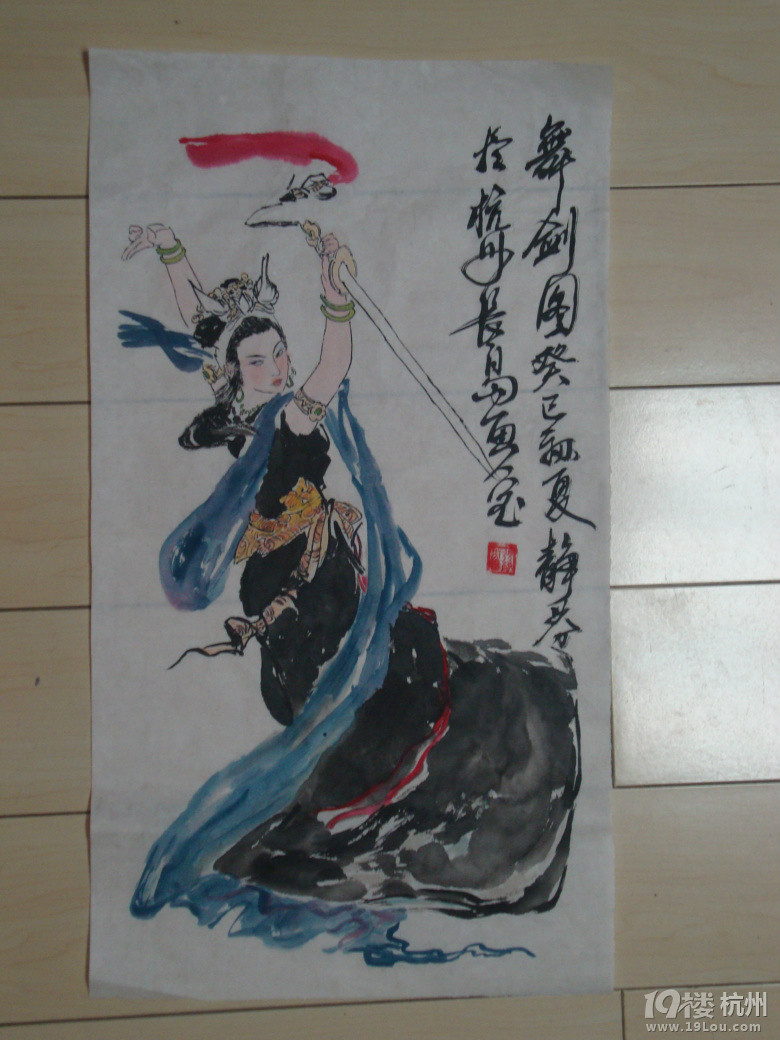 舞剑图癸巳初夏静
於杭州長島画室
19楼杭州
www.19Lou.com